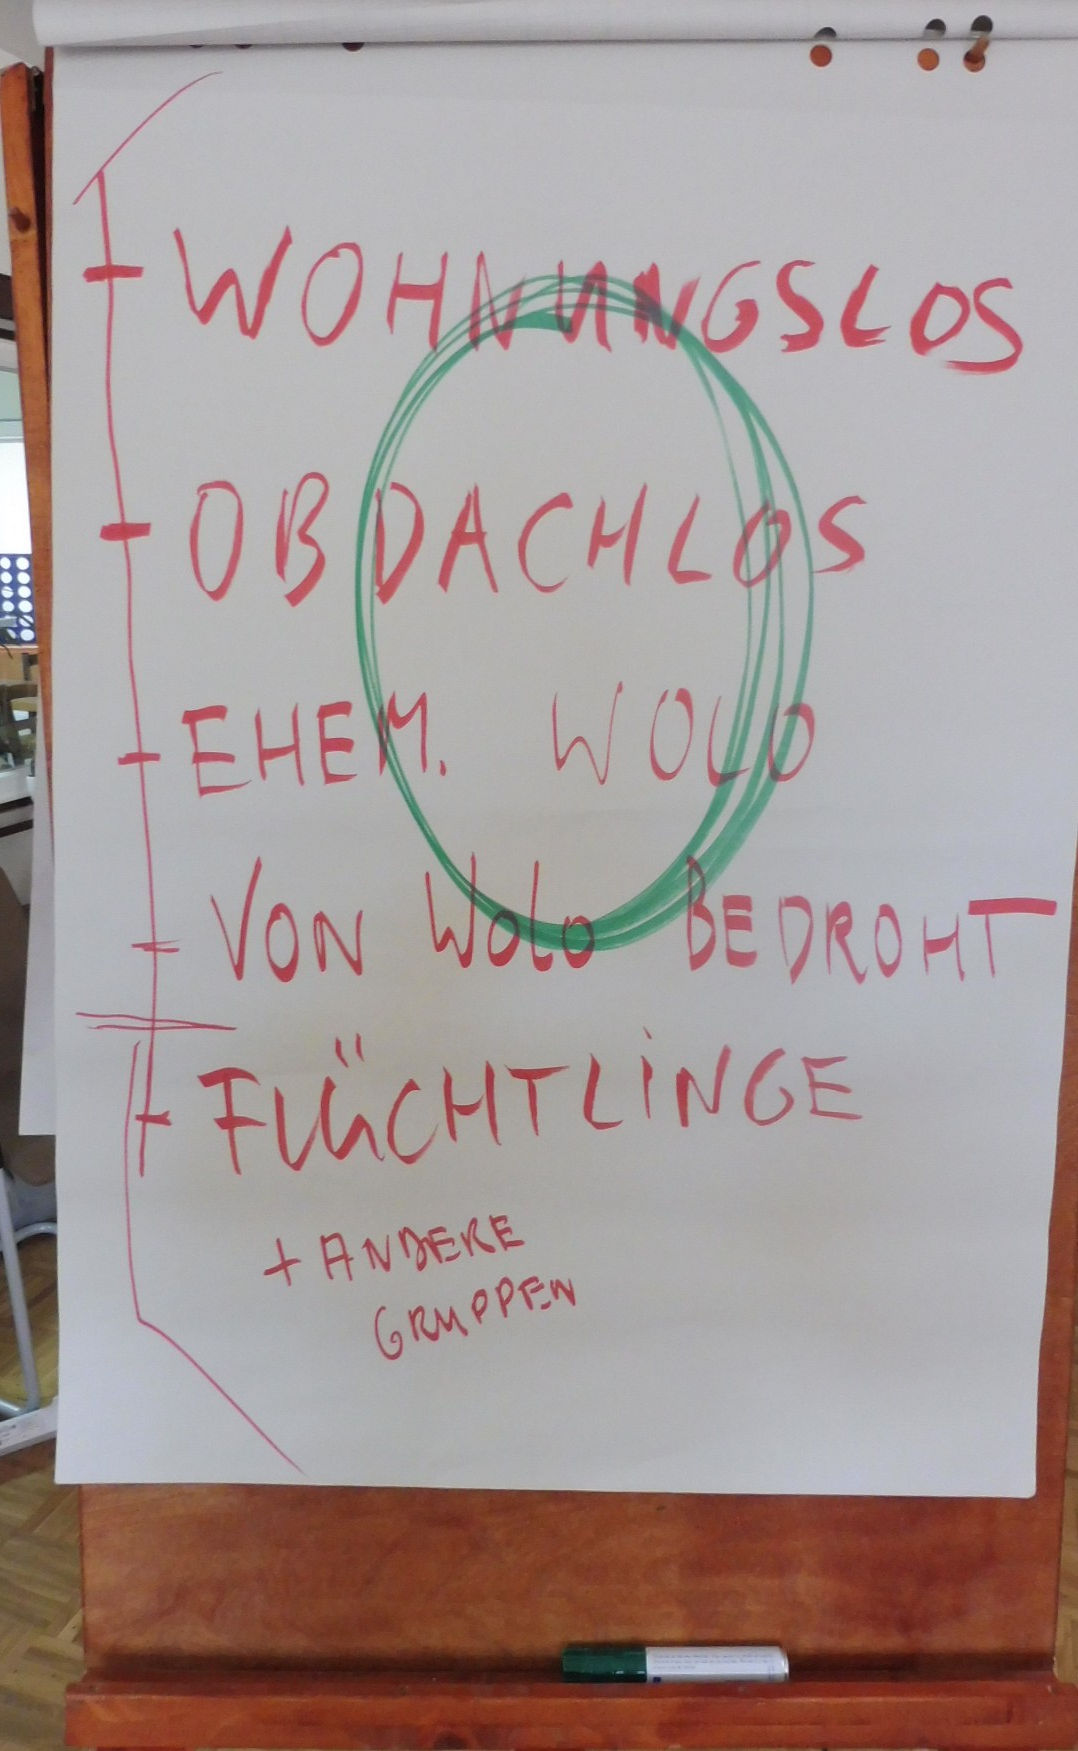 WOHNUNGSLOS
OBDACHLOS
EHEM. WOLO
VON WOLO BEDROHT
FLÜCHTLINGE
+ ANDERE
GRUPPEN